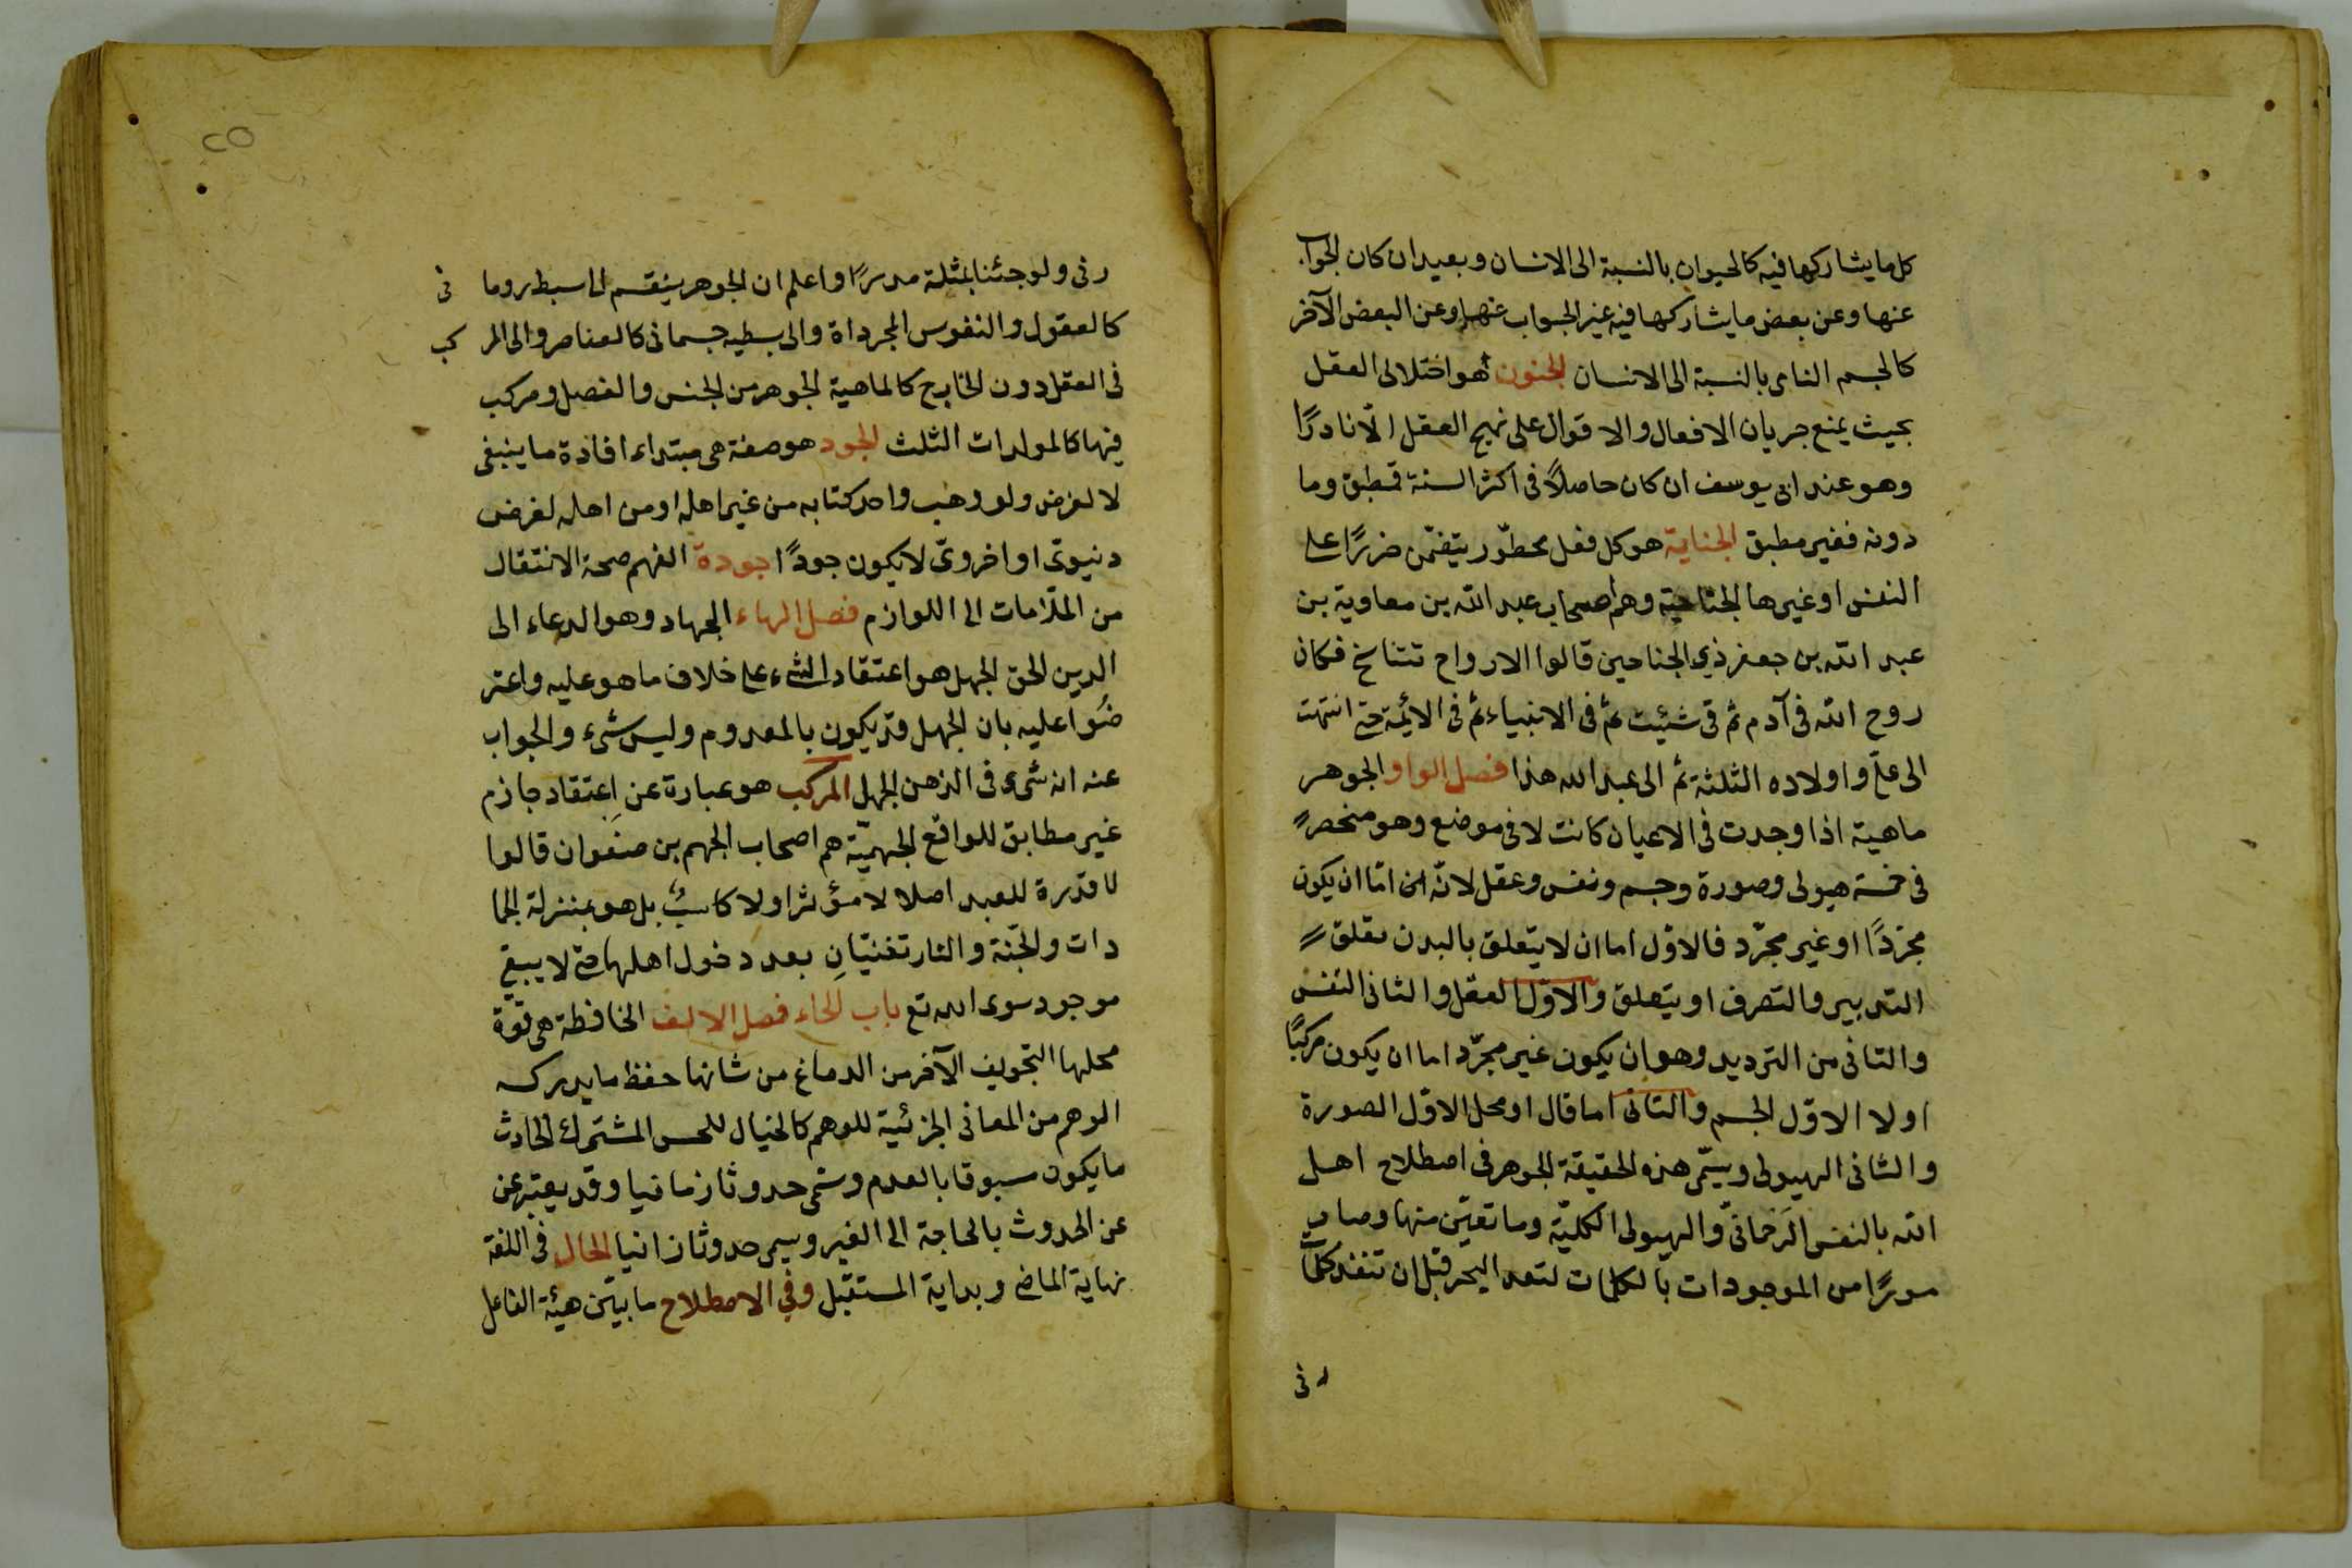 كل ما يشاركها فيه كالحيوان بالنسبة الى الانسان وبعيد ان كان الجواب
عنها وعن بعض ما يشاركها فيه غير الجواب عنها وعن البعض الآخر
كالجسم النامى بالنسبة الى الانسان الجنون هو اختلال العقل
بحيث يمنع جريان الافعال والاقوال على نهج العقل الّا نادرًا
وهو عند ابى يوسف ان كان حاصلاً فى اكثر السنة فمطبق وما
دونه فغير مطبق الجناية هو كل فعل محظور يتضمّن ضررًا على
النفس او غيرها الجناحية وهم اصحاب عبد الله بن معاوية بن
عبد الله بن جعفر ذي الجناحين قالوا الارواح تتناسخ فكان
روح الله فى آدم ثم فى شيث ثم فى الانبياء ثم فى الائمة حتى انتهت
الى علىّ واولاده الثلثة ثم الى عبد الله هذا فصل الواو الجوهر
ماهية اذا وجدت فى الاعيان كانت لا فى موضع وهو منحصر
فى خمسة هيولى وصورة وجسم ونفس وعقل لانّه امّا ان يكون
مجرّدًا او غير مجرّد فالاوّل اما ان لا يتعلق بالبدن تعلق
التدبير والتصرف او يتعلق والاوّل العقل والثانى النفس
والثانى من الترديد وهو ان يكون غير مجرّد اما ان يكون مركبًا
اولا الاوّل الجسم والثانى اما قال او محل الاوّل الصورة
والثانى الهيولى ويسمّى هذه الحقيقة الجوهر فى اصطلاح اهل
الله بالنفس الرحمانىّ والهيولى الكليّة وما تعيّن منها وصار
موررًا من الموجودات بالكلمات لنفد البحر قبل ان تنفد كلمات
ر فى
٢٥
ر فى ولو جئنا بمثلة مددًا واعلم ان الجوهر ينقسم الى بسيط روحا فى
كالعقول والنفوس المجرداة والى بسيط جسمانى كالعناصر والى المر كب
فى العقل دون الخارج كالماهية الجوهر من الجنس والفصل ومركب
فيها كالمولدات الثلث الجود هو صفة هى مبتداء افادة ما ينبغى
لا لغرض ولو وهب واحد كتابه من غير اهله او من اهله لغرض
دنيوىّ او اخروىّ لا يكون جودًا جودة الفهم صحة الانتقال
من الملّامات الى اللوازم فصل الهاء الجهاد وهو الدعاء الى
الدين الحق الجهل هو اعتقاد الشىء على خلاف ما هو عليه واعتر
ضوا عليه بان الجهل قد يكون بالمعدوم وليس شىء والجواب
عنه انه شىء فى الذهن الجهل المركب هو عبارة عن اعتقاد جازم
غير مطابق للواقع الجهميّة هم اصحاب الجهم بن صفوان قالوا
لا قدرة للعبد اصلا لا مؤثرا ولا كاسبٌ بل هو بمنزلة الجما
دات والجنّة والنار تفنيّان بعد دخول اهلها حتى لا يبقى
موجود سوى الله تع باب الحاء فصل الالف الحافظة هى قوّة
محلها التجويف الآخر من الدماغ من شانها حفظ ما يدركه
الوهم من المعانى الجزئية للوهم كالخيال للحس المشترك الحادث
ما يكون سبوقا بالعدم وسمّى حدوثا زمانيا وقد يعتبر عن
عن الحدوث بالحاجة الى الغير ويسمى حدوثا زانيا الحال فى اللغة
نهاية الماضى وبداية المستقبل وفى الاصطلاح ما بيّن هيئة الفاعل